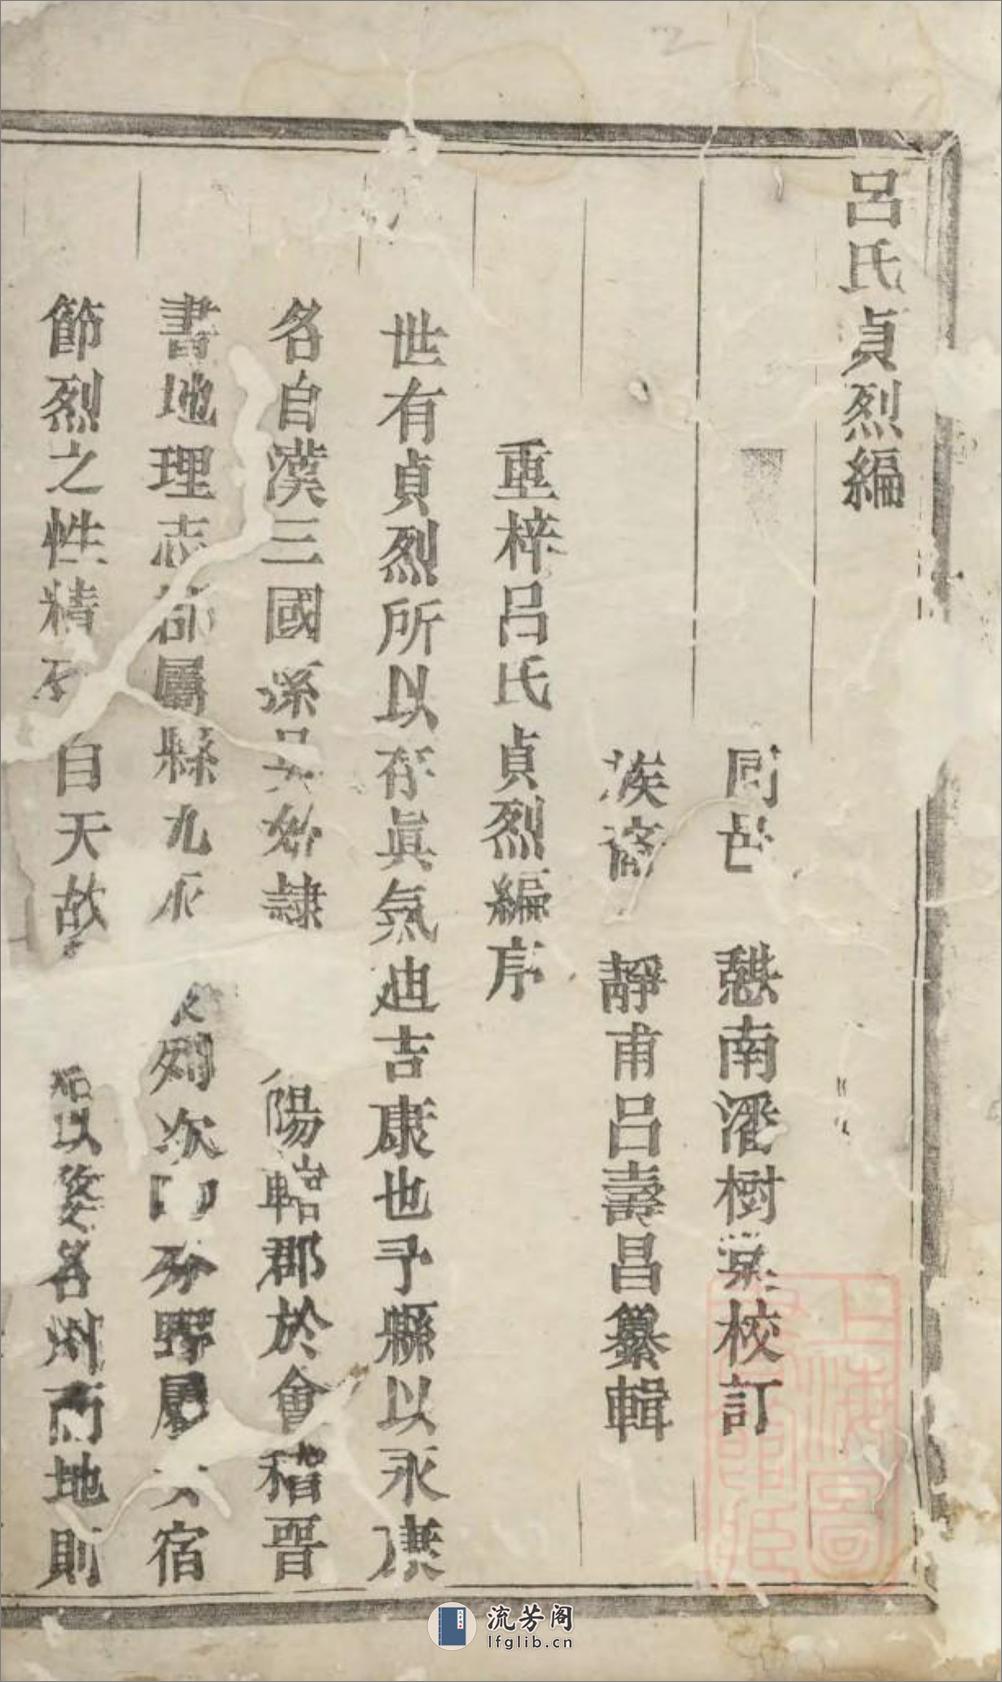 呂氏貞烈編
同邑 憇南潘樹棠校訂
族裔 靜甫呂壽昌纂輯
重梓呂氏貞烈編序
世有貞烈所以存眞氣迪吉康也予縣以永康
名自漢三國孫吳始隷 陽臨郡於會稽晉
書地理志郡屬縣九永 列次 分野屬 女宿
節烈之性精 自天故 以婺名州而地則
上海圖
流芳阁
lfglib.cn